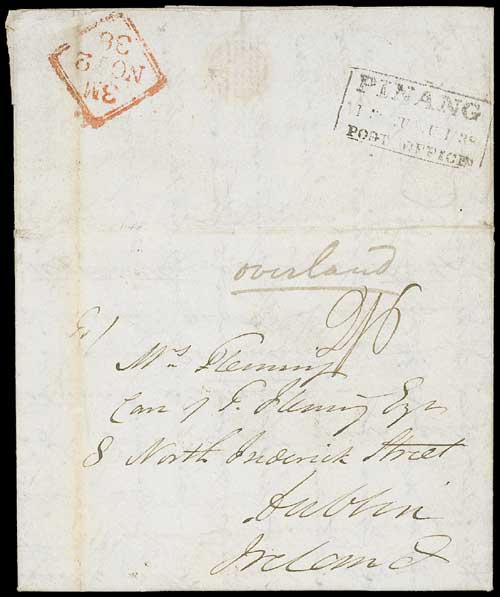 3M
NO 2
38
PINANG
POST OFFICE
overland
2/6
Mrs Fleming
Care of F. Fleming Esqr
8 North Frederick Street
Dublin
Ireland